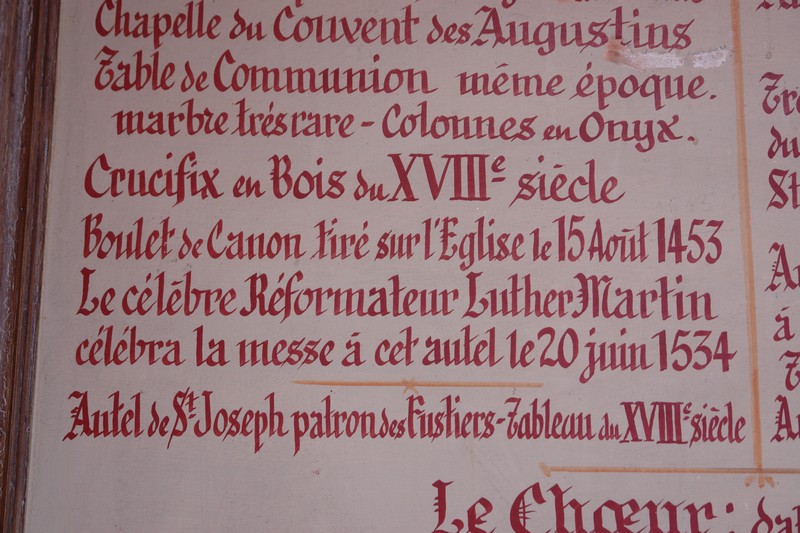 Chapelle du Couvent des Augustins
Table de Communion même époque.
marbre trés rare - Colonnes en Onyx.
Crucifix en Bois du XVIIIe siècle
Boulet de Canon tiré sur l'Eglise le 15 Août 1453
Le célèbre Réformateur Luther Martin
célébra la messe à cet autel le 20 juin 1534
Autel de St Joseph patron des Fustiers - Tableau du XVIIIe siècle
Le Chœur: